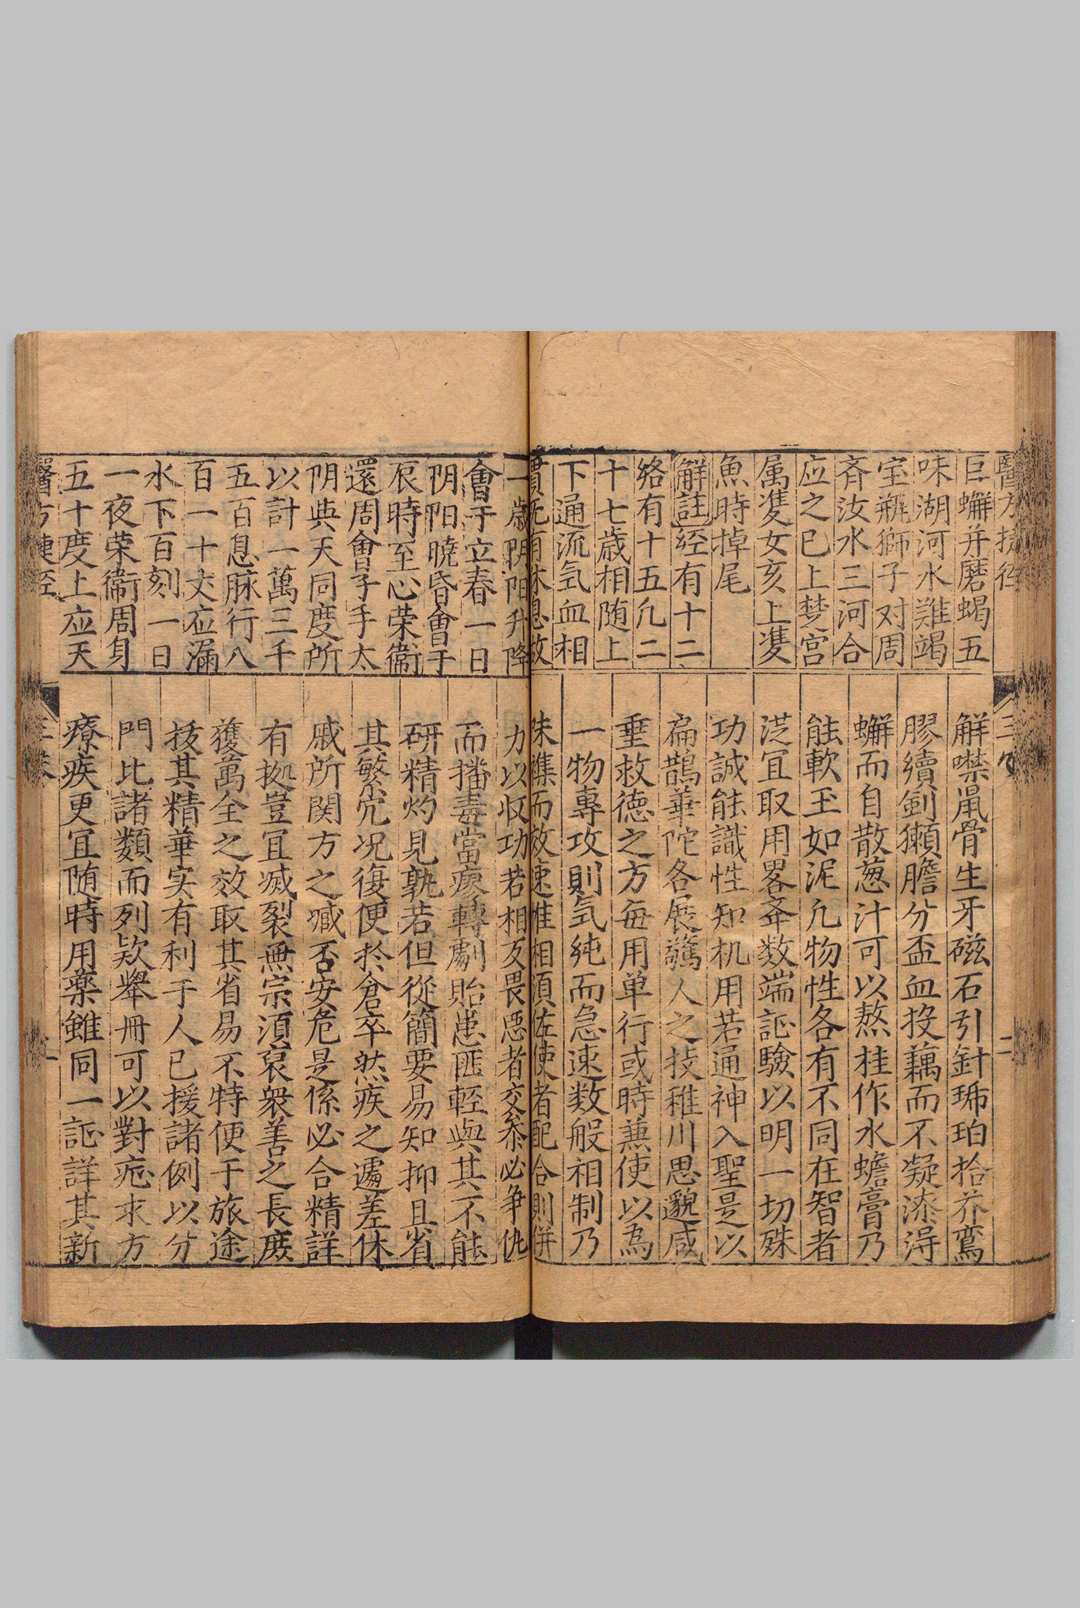 巨蠏并磨蝎五
味湖河水難竭
宝瓶獅子对周
斉汝水三河合
应之巳上梦宫
属隻女亥上隻
魚時掉尾
解註経有十二
絡有十五凢二
十七歳相随上
下通流氣血相
貫旣有休息故
一歳阴阳升降
會于立春一日
阴阳曉昏會于
辰時至心荣衞
還周會于手太
阴與天同度所
以計一萬三千
五百息脉行八
百一十丈应漏
水下百刻一日
一夜荣衞周身
五十度上应天
醫方捷徑
三卷
二
解噤鼡骨生牙磁石引針琥珀拾芥鸞
膠續劍獺膽分盃血投藕而不凝漆淂
蠏而自散葱汁可以熬桂作水蟾膏乃
能軟玉如泥凢物性各有不同在智者
泛宜取用畧夲数端証驗以明一切殊
功誠能識性知机用若通神入聖是以
扁鵲華陀各展驚人之技稚川思邈咸
埀救德之方毎用单行或時兼使以為
一物專攻則氣純而急速数般相制乃
味襍而效速惟相須佐使者配合則併
力以収功若相反畏惡者交叅必争仇
而播毒當瘳轉劇貽患匪輕與其不能
研精灼見孰若但從簡要易知抑且省
其繁冗况復便於倉卒然疾之遽差休
戚所関方之臧否安危是係必合精詳
有拠豈宜滅裂無宗須裒衆善之長庶
獲萬全之效取其省易不特便于旅途
拔其精華实有利于人已援諸例以分
門比諸類而列欵擧冊可以對疟求方
療疾更宜随時用藥雖同一証詳其新
醫方捷徑
三卷